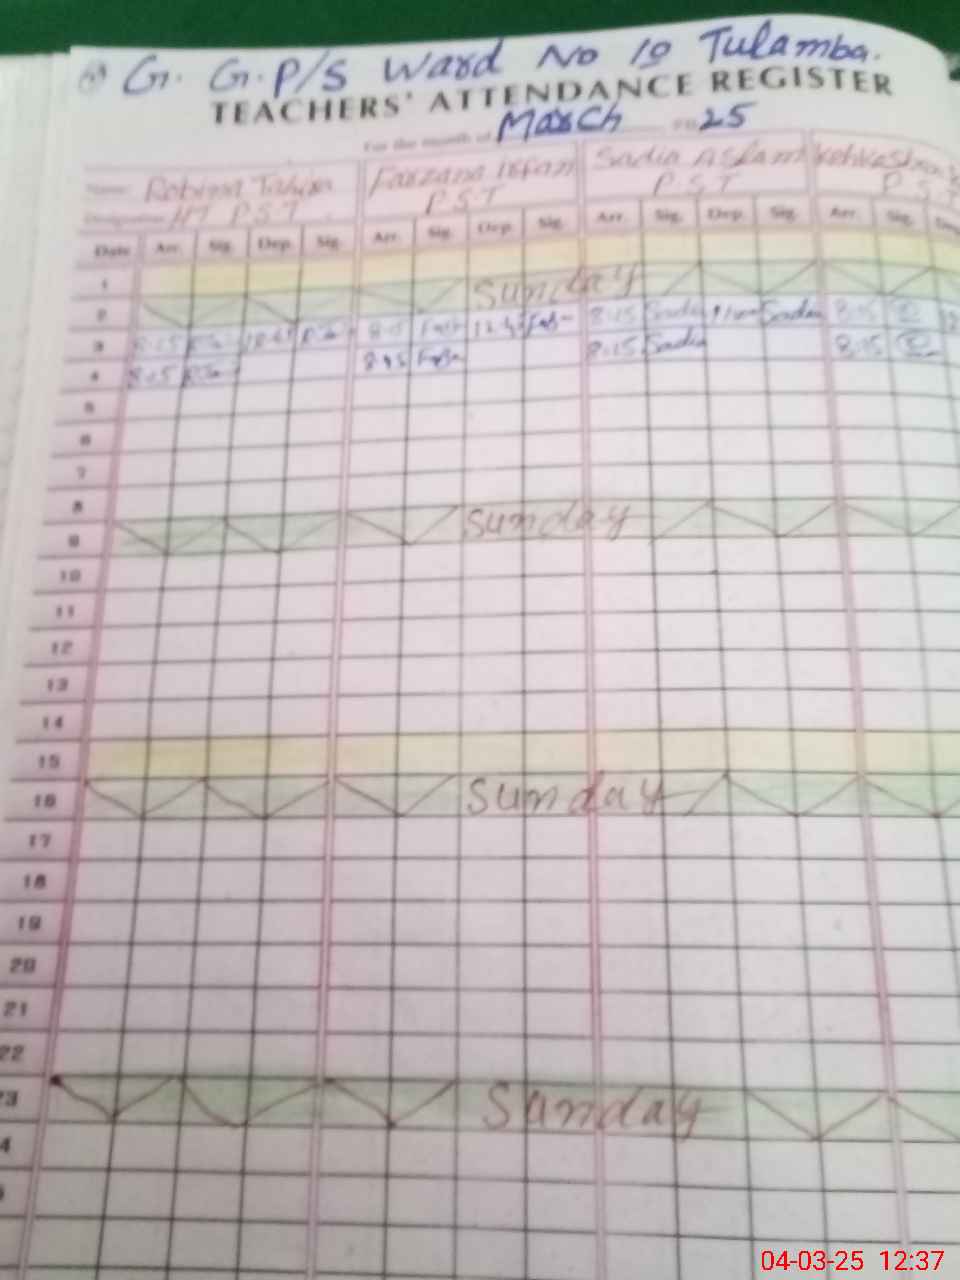 G. G.P/S Ward No 10 Tulamba.
TEACHERS' ATTENDANCE REGISTER
For the month of March 25
Name Robina Tahira Farzana Irfan Sadia Aslam
Designation HT P.S.T P.S.T P.S.T P.S.T
Date Arr. Sig. Dep. Sig. Arr. Sig. Dep. Sig. Arr. Sig. Dep. Sig. Arr. Sig. Dep.
1
2 Sunday
3 8:15 8:15 8:15 Sadia Sadia 8:15
4 8:15 8:15 8:15 Sadia 8:15
5
6
7
8
9 Sunday
10
11
12
13
14
15
16 Sunday
17
18
19
20
21
22
23 Sunday
4
04-03-25 12:37